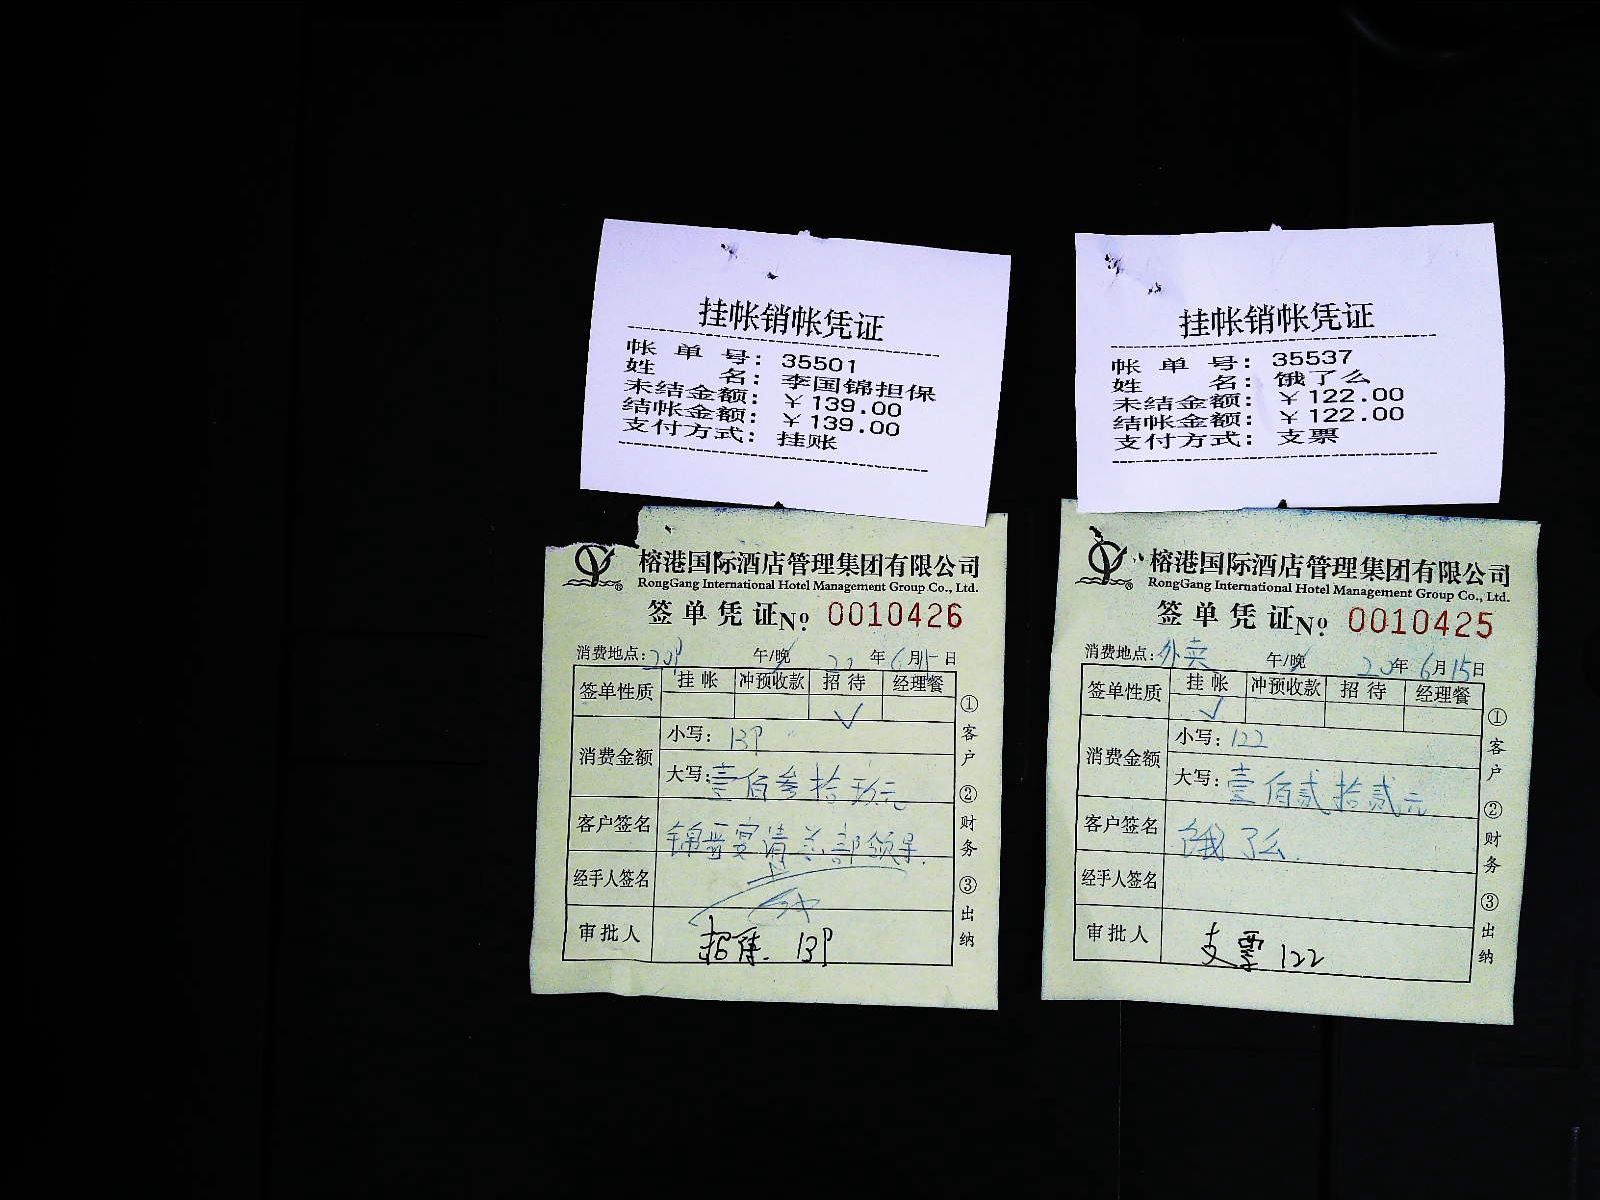 挂帐销帐凭证
帐单号：35501
姓名：李国锦担保
未结金额：￥139.00
结帐金额：￥139.00
支付方式：挂账
挂帐销帐凭证
帐单号：35537
姓名：饿了么
未结金额：￥122.00
结帐金额：￥122.00
支付方式：支票
榕港国际酒店管理集团有限公司
RongGang International Hotel Management Group Co., Ltd.
签单凭证No 0010426
消费地点：209 午/晚 年6月15日
签单性质 挂帐 冲预收款 招待 经理餐
√
消费金额 小写：139
大写：壹佰叁拾玖元
客户签名 锦晋宴请总部领导.
经手人签名
审批人 招待. 139
①客户 ②财务 ③出纳
榕港国际酒店管理集团有限公司
RongGang International Hotel Management Group Co., Ltd.
签单凭证No 0010425
消费地点：外卖 午/晚 20年6月15日
签单性质 挂帐 冲预收款 招待 经理餐
√
消费金额 小写：122
大写：壹佰贰拾贰元
客户签名 饿了么.
经手人签名
审批人 支票 122
①客户 ②财务 ③出纳